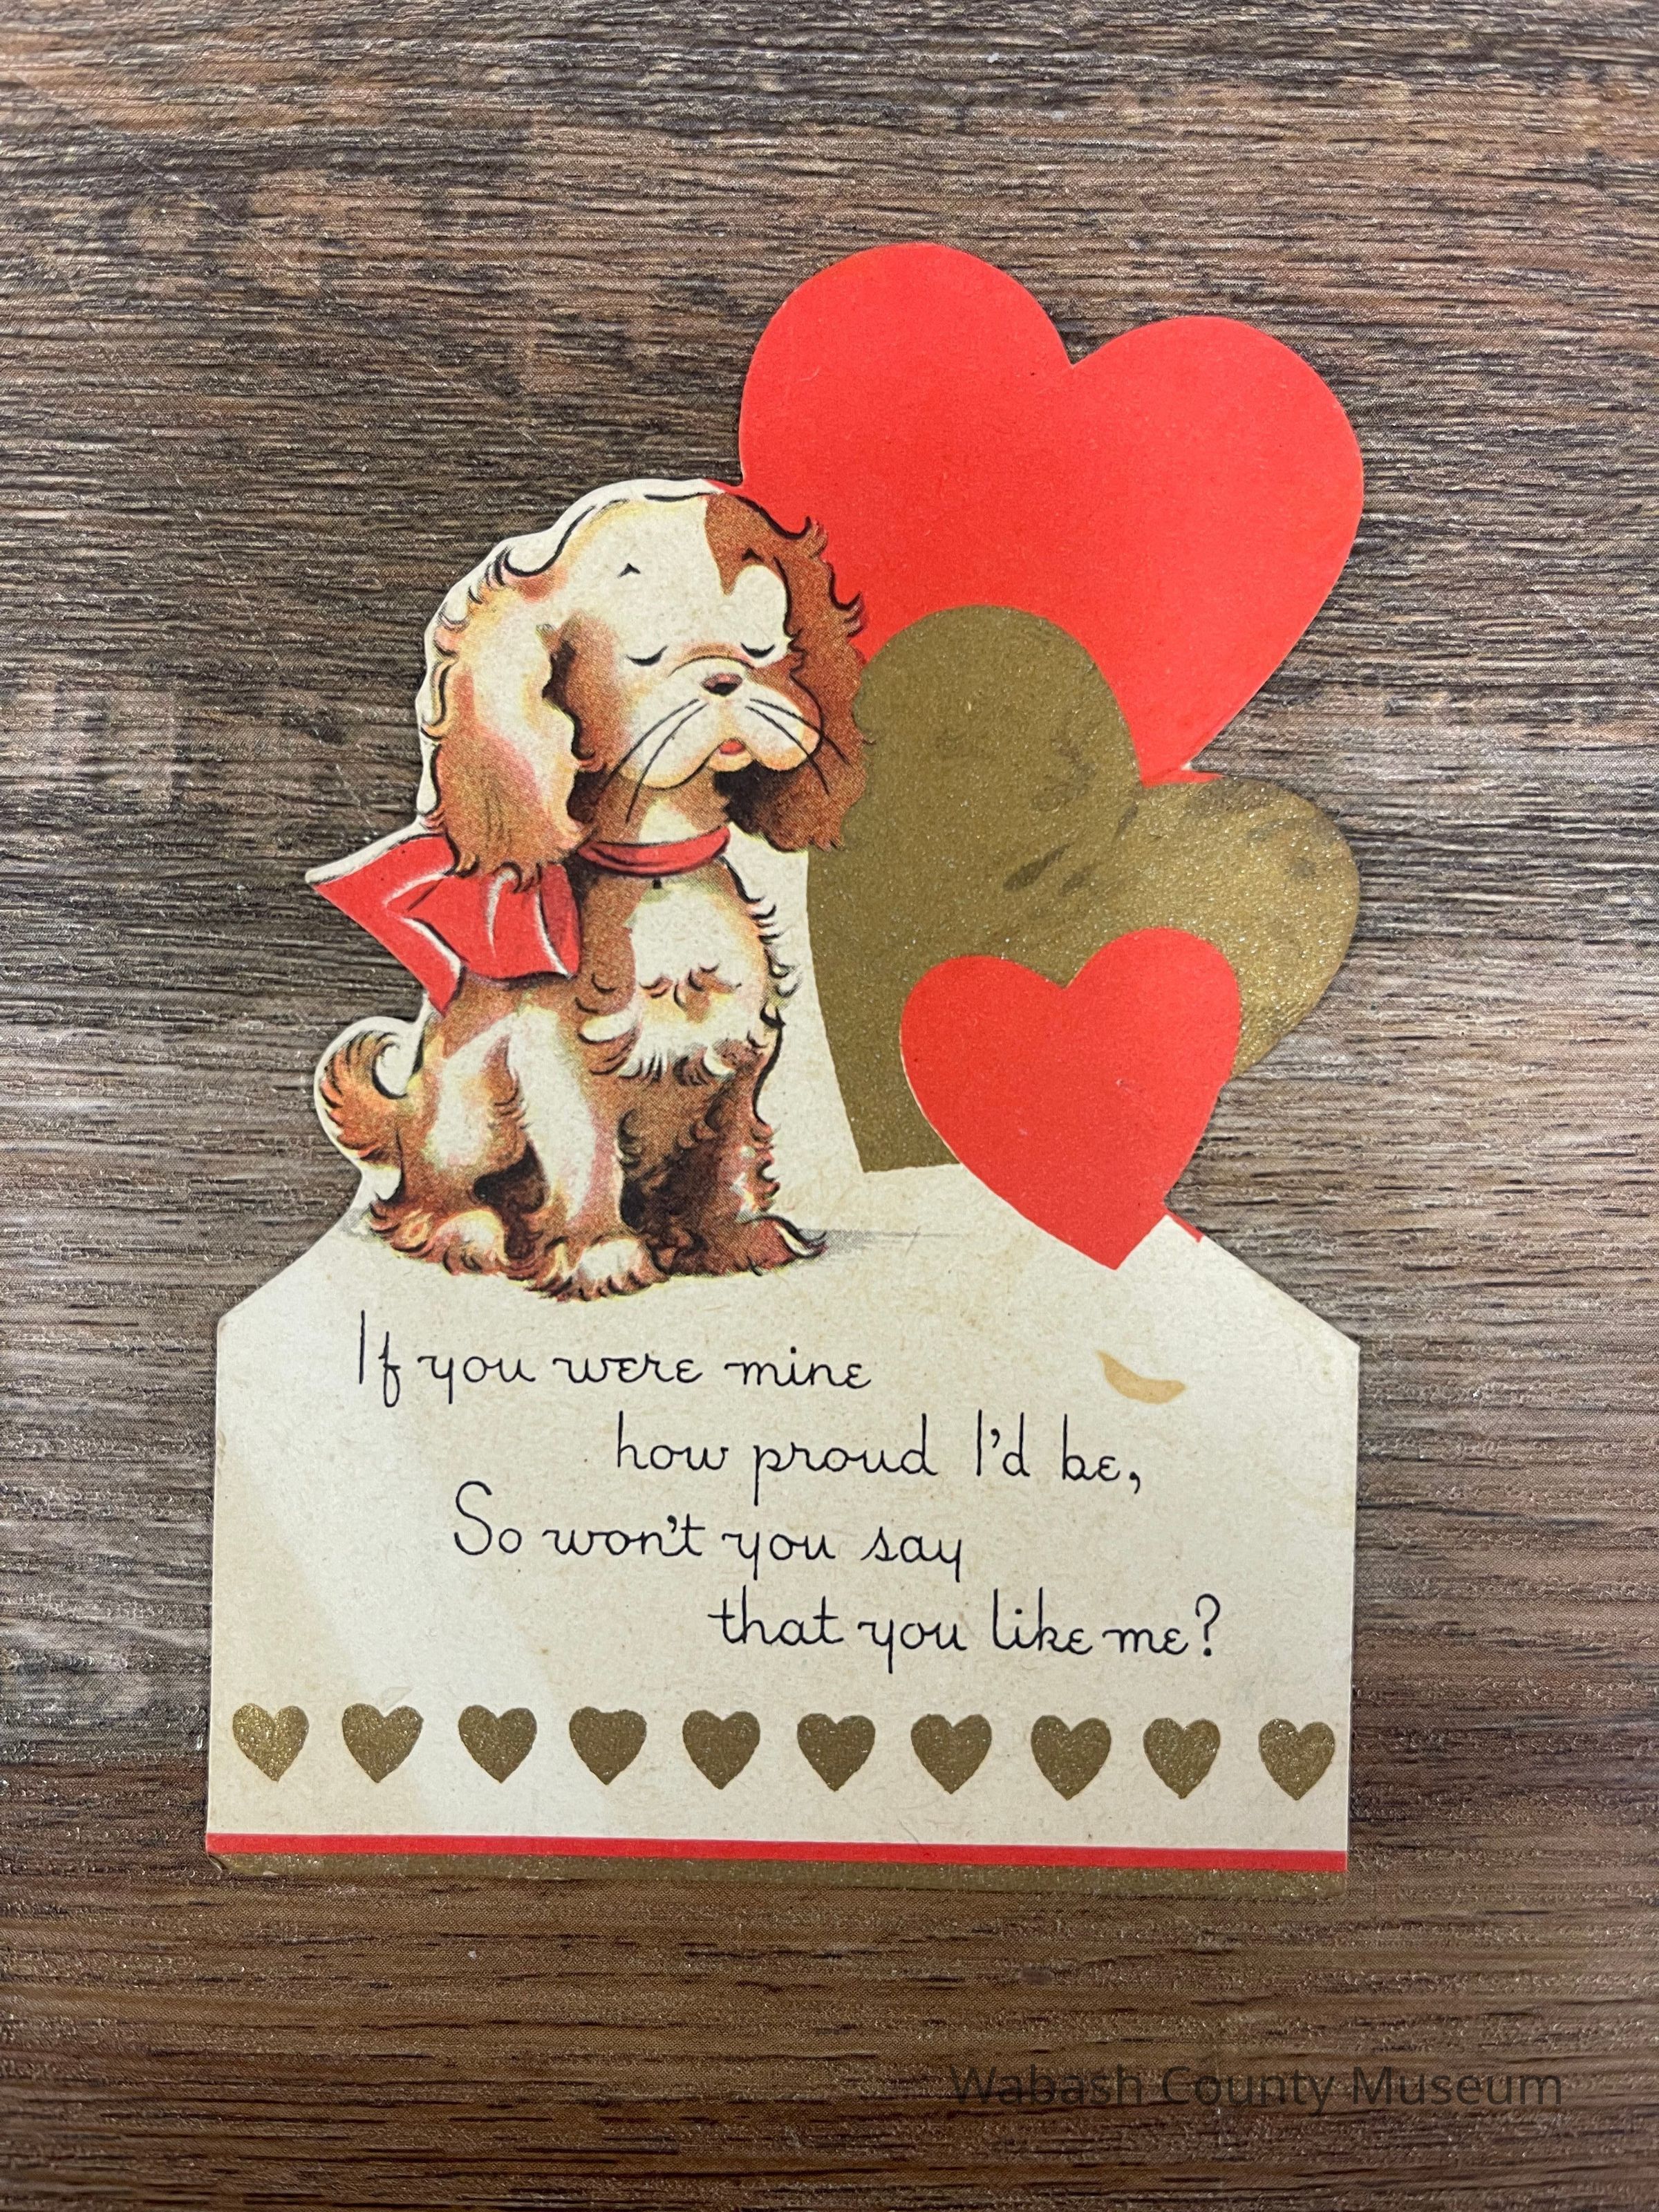 If you were mine
how proud I'd be,
So won't you say
that you like me?
Wabash County Museum